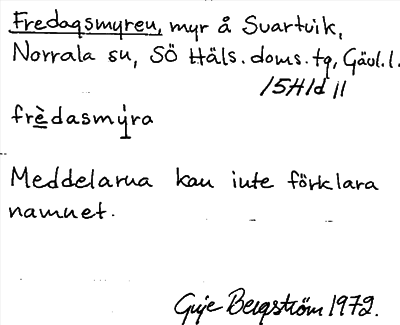 Fredagsmyren, myr å Svartvik,
Norrala sn, SÖ Häls. doms. tg, Gävl. l.
15H1d 11
frè̲dasmýra
Meddelarna kan inte förklara
namnet.
Guje Bergström 1972.